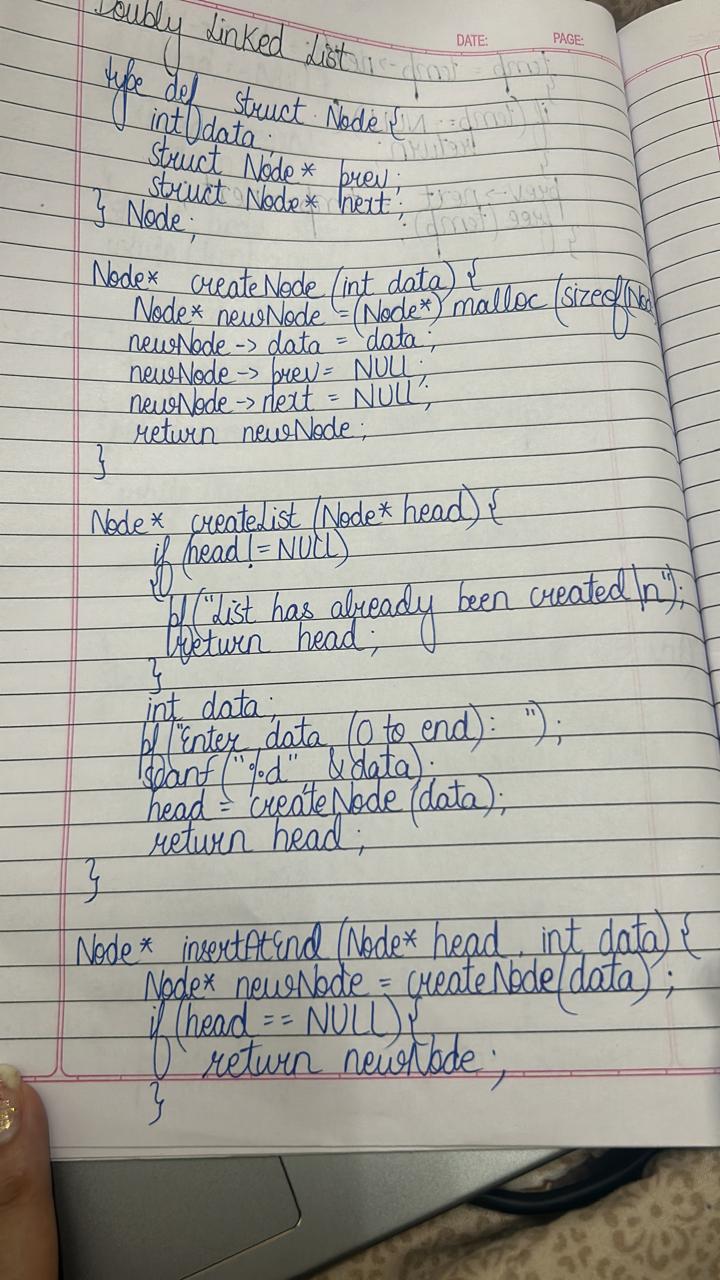 Doubly Linked List
DATE: PAGE:
type def struct Node {
int data;
struct Node* prev;
struct Node* next;
} Node;
Node* createNode (int data) {
Node* newNode = (Node*) malloc (sizeof(Nod
newNode -> data = data;
newNode -> prev = NULL;
newNode -> next = NULL;
return newNode;
}
Node* createList (Node* head) {
if (head != NULL)
{
pf ("List has already been created \n");
return head;
}
int data;
pf ("Enter data (0 to end): ");
scanf ("%d" &data);
head = createNode (data);
return head;
}
Node* insertAtEnd (Node* head, int data) {
Node* newNode = createNode (data);
if (head == NULL) {
return newNode;
}